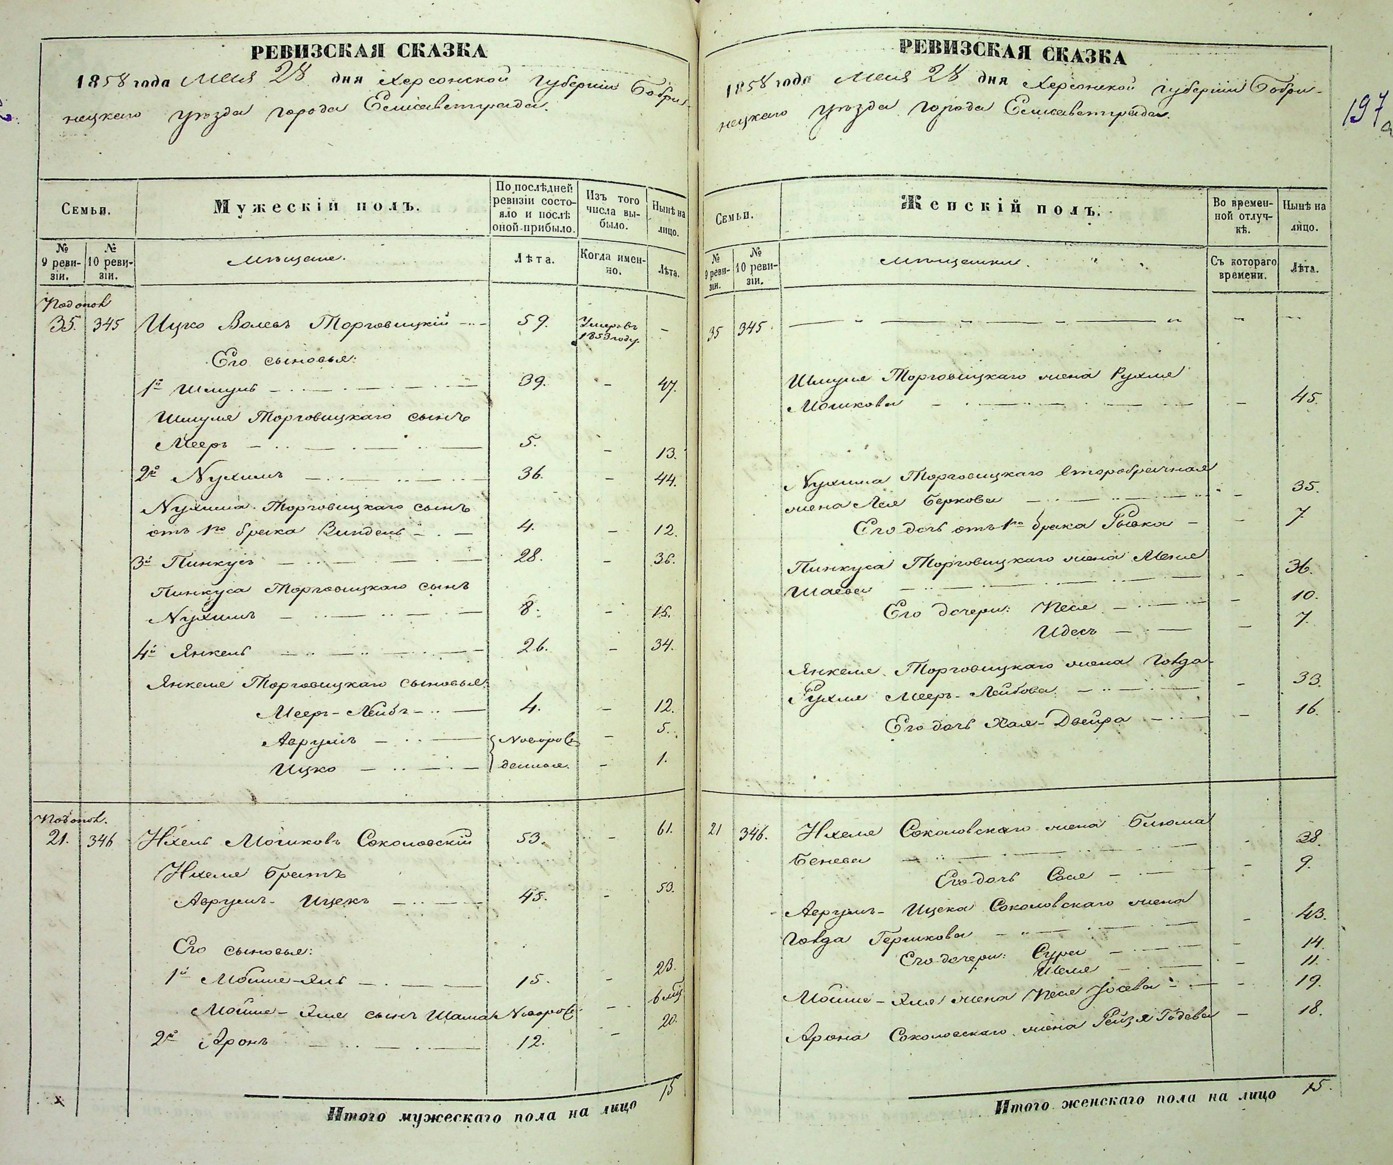 РЕВИЗСКАЯ СКАЗКА
1858 года Мая 28 дня Херсонской Губерніи Бобри-
нецкаго уѣзда города Елисаветграда.
Семьи.
Мужескій полъ.
По послѣдней ревизіи состо-
яло и послѣ оной прибыло.
Изъ того числа вы-
было.
Нынѣ на лицо.
№ 9 реви-
зіи.
№ 10 реви-
зіи.
Мѣщане.
Лѣта.
Когда имен-
но.
Лѣта.
35. 345 Ицко Волевъ Торговицкій 59. Умеръ въ 1853 году. —
Его сыновья:
1й Шмуль 39. - 47.
Шмуля Торговицкаго сынъ
Мееръ 5. - 13.
2й Нухимъ 36. - 44.
Нухима Торговицкаго сынъ
отъ 1го брака 4. - 12.
3й Пинкусъ 28. - 36.
Пинкуса Торговицкаго сынъ
Нухимъ 8. - 15.
4й Янкель 26. - 34.
Янкеля Торговицкаго сыновья:
Мееръ-Лейбъ 4. - 12.
Аврумъ Новорож- - 5.
Ицко денные. - 1.
21. 346 Ихель Мошковъ Соколовскій 53. - 61.
Ихеля братъ
Аврумъ-Ицекъ 45. - 53.
Его сыновья:
1й Мойше-Янъ 15. 23.
Мойше-Яня сынъ Шама Новорож. - 6 мѣс.
2й Аронъ 12. - 20.
Итого мужескаго пола на лицо 15
РЕВИЗСКАЯ СКАЗКА
1858 года Мая 28 дня Херсонской Губерніи Бобри-
нецкаго уѣзда города Елисаветграда.
197
Семьи.
Женскій полъ.
Во времен-
ной отлуч-
кѣ.
Нынѣ на лицо.
№ 9 реви-
зіи.
№ 10 реви-
зіи.
Мѣщанки.
Съ котораго времени.
Лѣта.
35 345.
Шмуля Торговицкаго жена Рухля
Мошкова 45.
Нухима Торговицкаго второбрачная
жена Лея Беркова - 35.
Его дочь отъ 1го брака Рывка - 7
Пинкуса Торговицкаго жена Меня
Шаева - 36.
Его дочери: Песя - 10.
Идесъ - 7.
Янкеля Торговицкаго жена Говда-
Рухля Мееръ-Лейбова - 33.
Его дочь Хая-Двейра - 16.
21 346. Ихеля Соколовскаго жена Блюма
Бенева - 38.
Его дочь Сося - 9.
Аврумъ-Ицека Соколовскаго жена
Говда Гершкова - 43.
Его дочери: Сура - 14
- 11.
Мойше-Яня жена Песя Іосева - 19.
Арона Соколовскаго жена Рейзя - 18.
Итого женскаго пола на лицо 15.